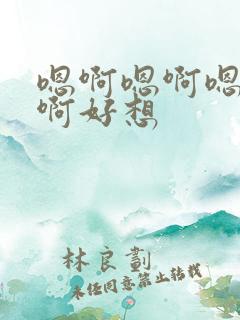 嗯啊嗯啊嗯
啊好想
林良劃
未经同意禁止转载